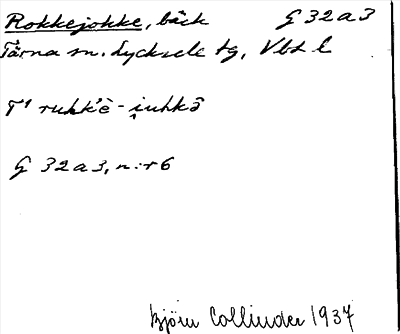 Rokkejokke, bäck G 32 a 3
Tärna sn. Lycksele tg, Vbt l
T¹ ruhk'e̮ - i̯uhkɔ̂
G 32 a 3, n:r 6
Björn Collinder 1937